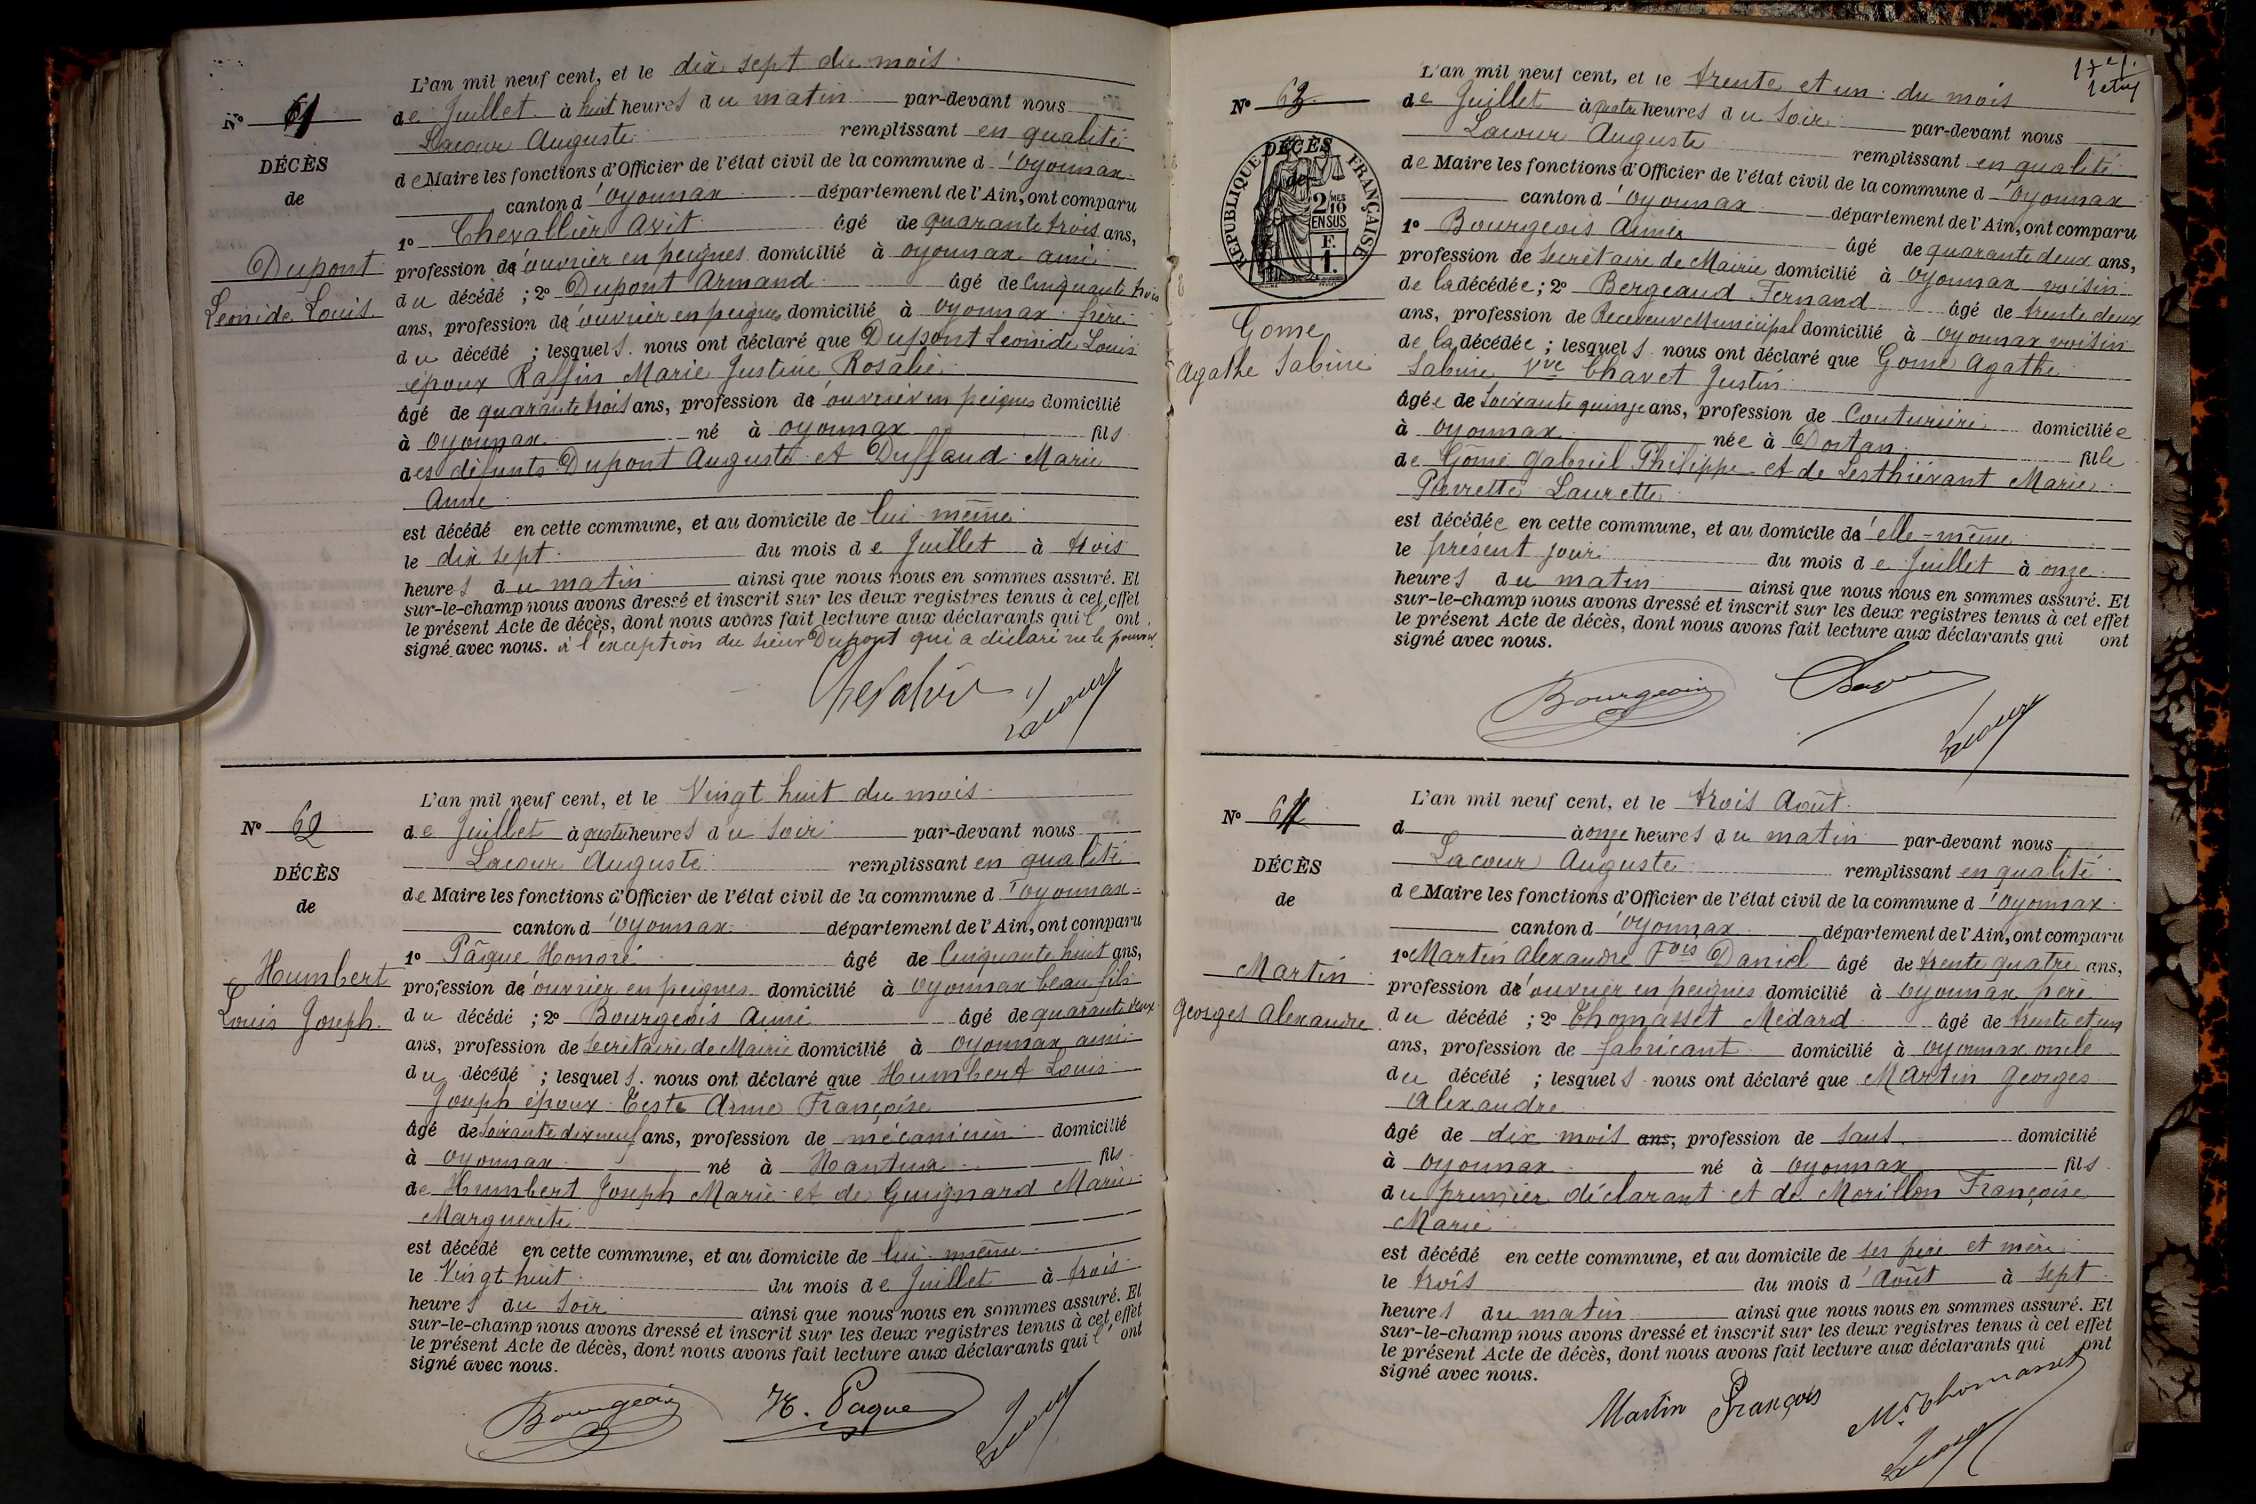 L'an mil neuf cent, et le dix sept du mois
de Juillet à huit heures du matin par-devant nous
Lacour Auguste remplissant en qualité
de Maire les fonctions d'Officier de l'état civil de la commune d'Oyonnax
canton d'Oyonnax département de l'Ain, ont comparu
1º Chevallier Avit âgé de quarante trois ans,
profession d'ouvrier en peignes domicilié à Oyonnax ami
du décédé ; 2º Dupont Armand âgé de Cinquante trois
ans, profession d'ouvrier en peignes domicilié à Oyonnax frère
du décédé ; lesquels nous ont déclaré que Dupont Léonide Louis
époux Raffin Marie Justine Rosalie
âgé de quarante trois ans, profession d'ouvrier en peignes domicilié
à Oyonnax né à Oyonnax fils
des défunts Dupont Auguste et Duffaud Marie
Anne
est décédé en cette commune, et au domicile de lui même
le dix sept du mois de Juillet à trois
heures du matin ainsi que nous nous en sommes assuré. Et
sur-le-champ nous avons dressé et inscrit sur les deux registres tenus à cet effet
le présent Acte de décès, dont nous avons fait lecture aux déclarants qui l'ont
signé avec nous. à l'exception du sieur Dupont qui a déclaré ne le pouvoir
Nº 61
DÉCÈS
de
Dupont
Léonide Louis
Chevalier
Lacour
L'an mil neuf cent, et le Vingt huit du mois
de Juillet à quatre heures du soir par-devant nous
Lacour Auguste remplissant en qualité
de Maire les fonctions d'Officier de l'état civil de la commune d'Oyonnax
canton d'Oyonnax département de l'Ain, ont comparu
1º Pâque Honoré âgé de Cinquante huit ans,
profession d'ouvrier en peignes domicilié à Oyonnax beau fils
du décédé ; 2º Bourgeois Aimé âgé de quarante deux
ans, profession de Secrétaire de Mairie domicilié à Oyonnax ami
du décédé ; lesquels nous ont déclaré que Humbert Louis
Joseph époux Teste Anne Françoise
âgé de Soixante dix neuf ans, profession de mécanicien domicilié
à Oyonnax né à Nantua fils
de Humbert Joseph Marie et de Guignard Marie
Marguerite
est décédé en cette commune, et au domicile de lui même
le Vingt huit du mois de Juillet à trois
heures du soir ainsi que nous nous en sommes assuré. Et
sur-le-champ nous avons dressé et inscrit sur les deux registres tenus à cet effet
le présent Acte de décès, dont nous avons fait lecture aux déclarants qui l'ont
signé avec nous.
Nº 62
DÉCÈS
de
Humbert
Louis Joseph
Bourgeois
H. Paque
Lacour
L'an mil neuf cent, et le trente et un du mois
de Juillet à quatre heures du soir par-devant nous
Lacour Auguste remplissant en qualité
de Maire les fonctions d'Officier de l'état civil de la commune d'Oyonnax
canton d'Oyonnax département de l'Ain, ont comparu
1º Bourgeois Aimé âgé de quarante deux ans,
profession de Secrétaire de Mairie domicilié à Oyonnax voisin
de la décédée ; 2º Bergeaud Fernand âgé de trente deux
ans, profession de Receveur Municipal domicilié à Oyonnax voisin
de la décédée ; lesquels nous ont déclaré que Gome Agathe
Sabine Vve Chavet Justin
âgée de Soixante quinze ans, profession de Couturière domiciliée
à Oyonnax née à Dortan fille
de Gome Gabriel Philippe et de Lesthiévant Marie
Pierrette Laurette
est décédée en cette commune, et au domicile d'elle-même
le présent jour du mois de Juillet à onze
heures du matin ainsi que nous nous en sommes assuré. Et
sur-le-champ nous avons dressé et inscrit sur les deux registres tenus à cet effet
le présent Acte de décès, dont nous avons fait lecture aux déclarants qui ont
signé avec nous.
Nº 63
DÉCÈS
de
RÉPUBLIQUE FRANÇAISE
2 MES 10
EN SUS
F.
1.
Gome
Agathe Sabine
Bourgeois
Lacour
L'an mil neuf cent, et le trois Août
d à onze heures du matin par-devant nous
Lacour Auguste remplissant en qualité
de Maire les fonctions d'Officier de l'état civil de la commune d'Oyonnax
canton d'Oyonnax département de l'Ain, ont comparu
1º Martin Alexandre Fois Daniel âgé de trente quatre ans,
profession d'ouvrier en peignes domicilié à Oyonnax père
du décédé ; 2º Thomasset Médard âgé de trente et un
ans, profession de fabricant domicilié à Oyonnax oncle
du décédé ; lesquels nous ont déclaré que Martin Georges
Alexandre
âgé de dix mois ans, profession de sans domicilié
à Oyonnax né à Oyonnax fils
du premier déclarant et de Morillon Françoise
Marie
est décédé en cette commune, et au domicile de ses père et mère
le trois du mois d'Août à sept
heures du matin ainsi que nous nous en sommes assuré. Et
sur-le-champ nous avons dressé et inscrit sur les deux registres tenus à cet effet
le présent Acte de décès, dont nous avons fait lecture aux déclarants qui ont
signé avec nous.
Nº 64
DÉCÈS
de
Martin
Georges Alexandre
Martin François
Md Thomasset
Lacour